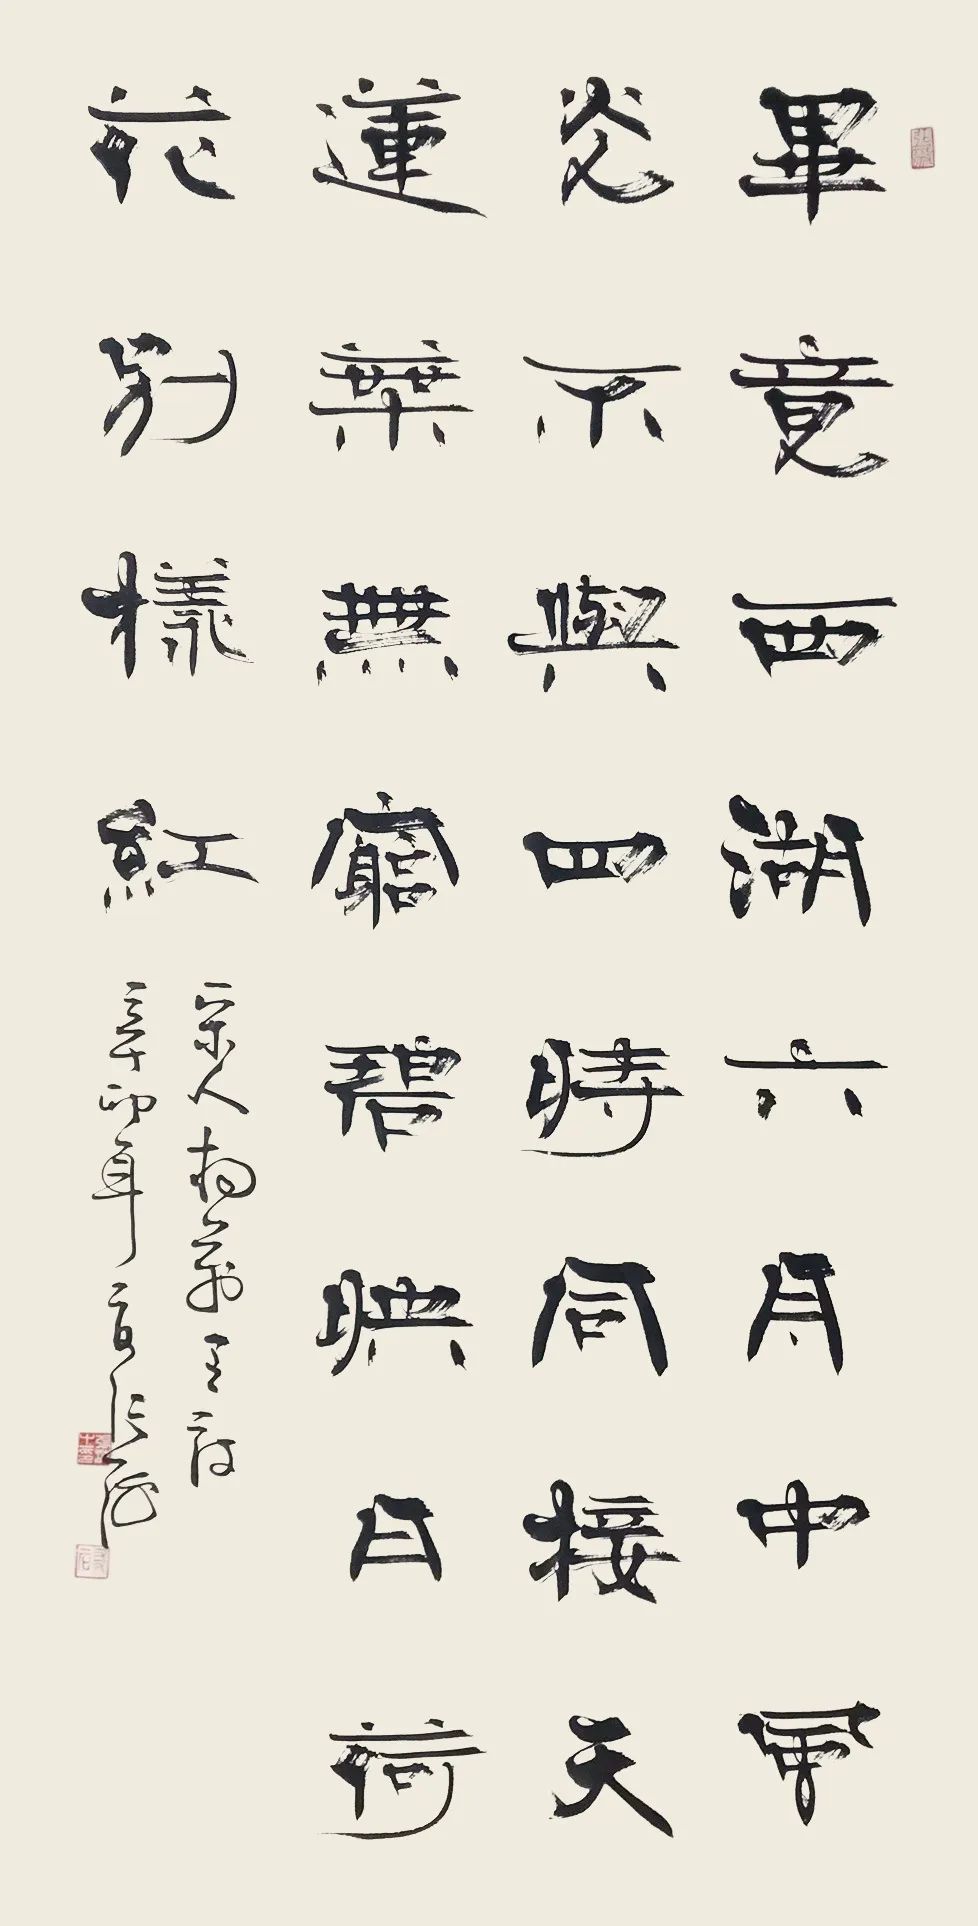 畢竟西湖六月中風
光不與四時同接天
蓮葉無窮碧映日荷
花別樣紅
宋人楊萬里詩
辛卯年張海